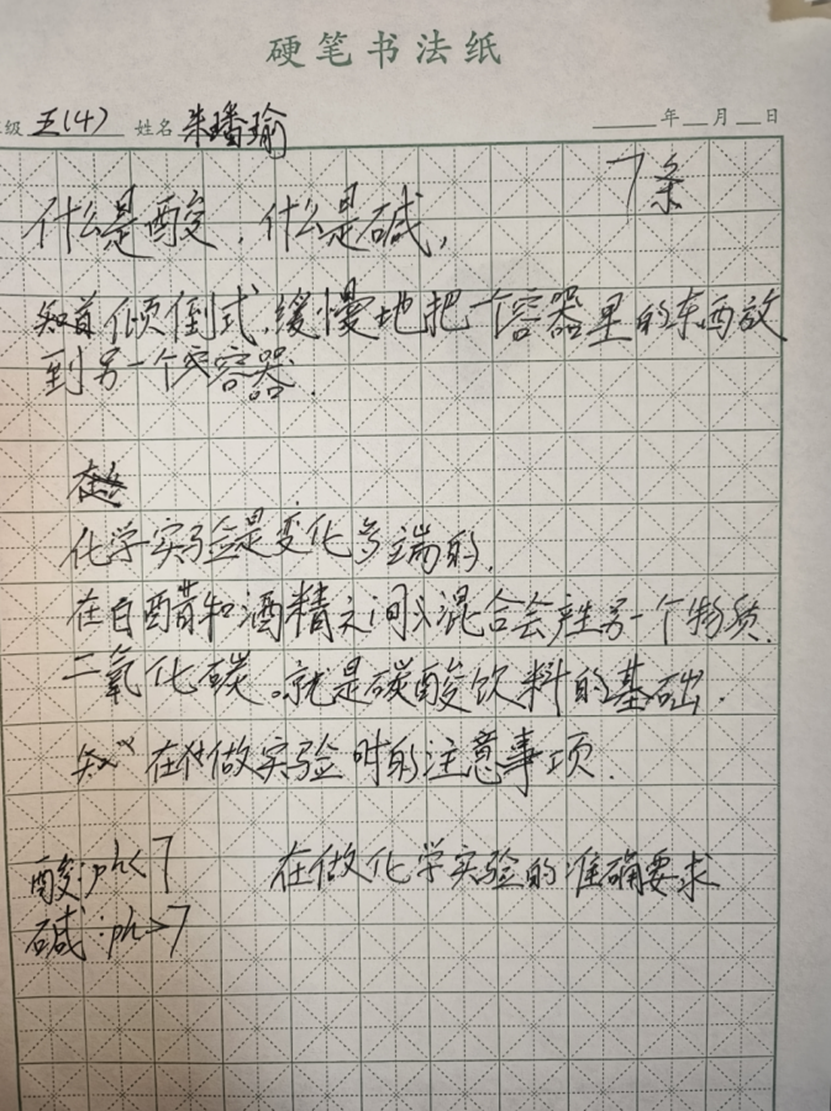 硬笔书法纸
级 五(4) 姓名 朱璠瑜 年 月 日
7条
什么是酸,什么是碱,
知道倾倒式,缓慢地把一个容器里的东西放
到另一个容器.
化学实验是变化多端的.
在白醋和酒精之间混合会产生另一个物质.
二氧化碳。就是碳酸饮料的基础.
知 在做实验时的注意事项.
酸:ph<7 在做化学实验的准确要求
碱:ph>7